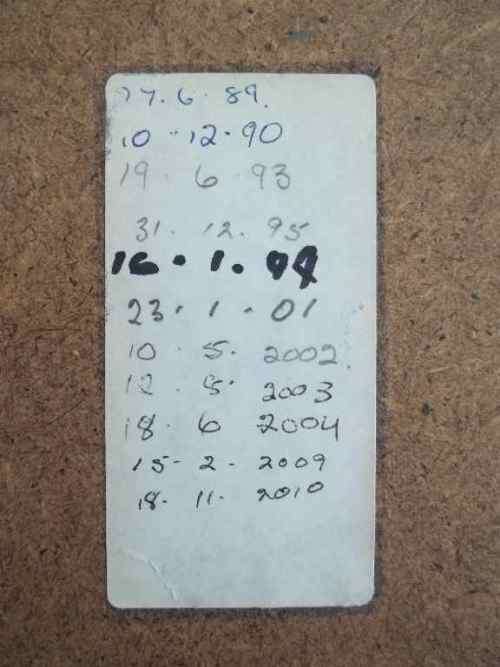 27. 6. 89.
10 - 12. 90
19 6 93
31. 12. 95
16. 1. 99
23. 1. 01
10 . 5. 2002.
12 . 5. 2003
18. 6 2004
15- 2- 2009
18. 11. 2010